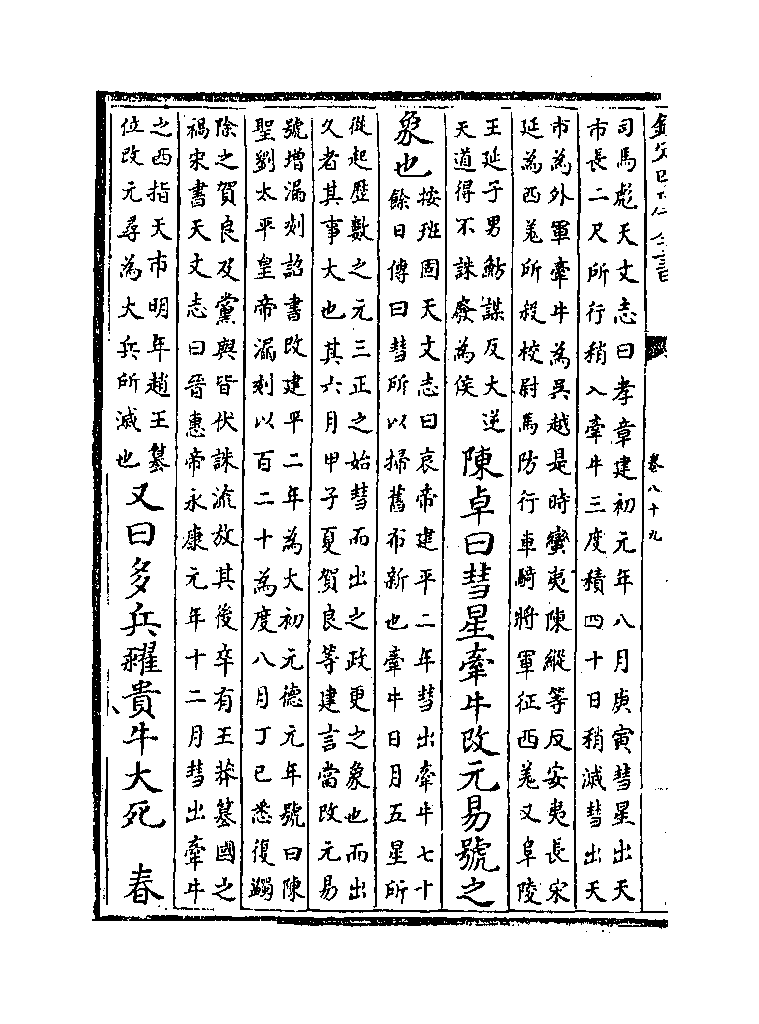 欽定四庫全書
卷八十九
司馬彪天文志曰孝章建初元年八月庚寅彗星出天
市長二尺所行稍入牽牛三度積四十日稍滅彗出天
市為外軍牽牛為吳越是時蠻夷陳縱等反安夷長宋
延為西羌所殺校尉馬防行車騎將軍征西羌又阜陵
王延子男魴謀反大逆
天道得不誅廢為侯
陳卓曰彗星牽牛改元易號之
象也
按班固天文志曰哀帝建平二年彗出牽牛七十
餘日傳曰彗所以掃舊布新也牽牛日月五星所
從起歷數之元三正之始彗而出之政更之象也而出
久者其事大也其六月甲子夏賀良等建言當改元易
號增漏刻詔書改建平二年為大初元德元年號曰陳
聖劉太平皇帝漏刻以百二十為度八月丁巳悉復蠲
除之賀良及黨與皆伏誅流放其後卒有王莽簒國之
禍宋書天文志曰晉惠帝永康元年十二月彗出牽牛
之西指天市明年趙王簒
位改元尋為大兵所滅也
又曰多兵糴貴牛大死 春